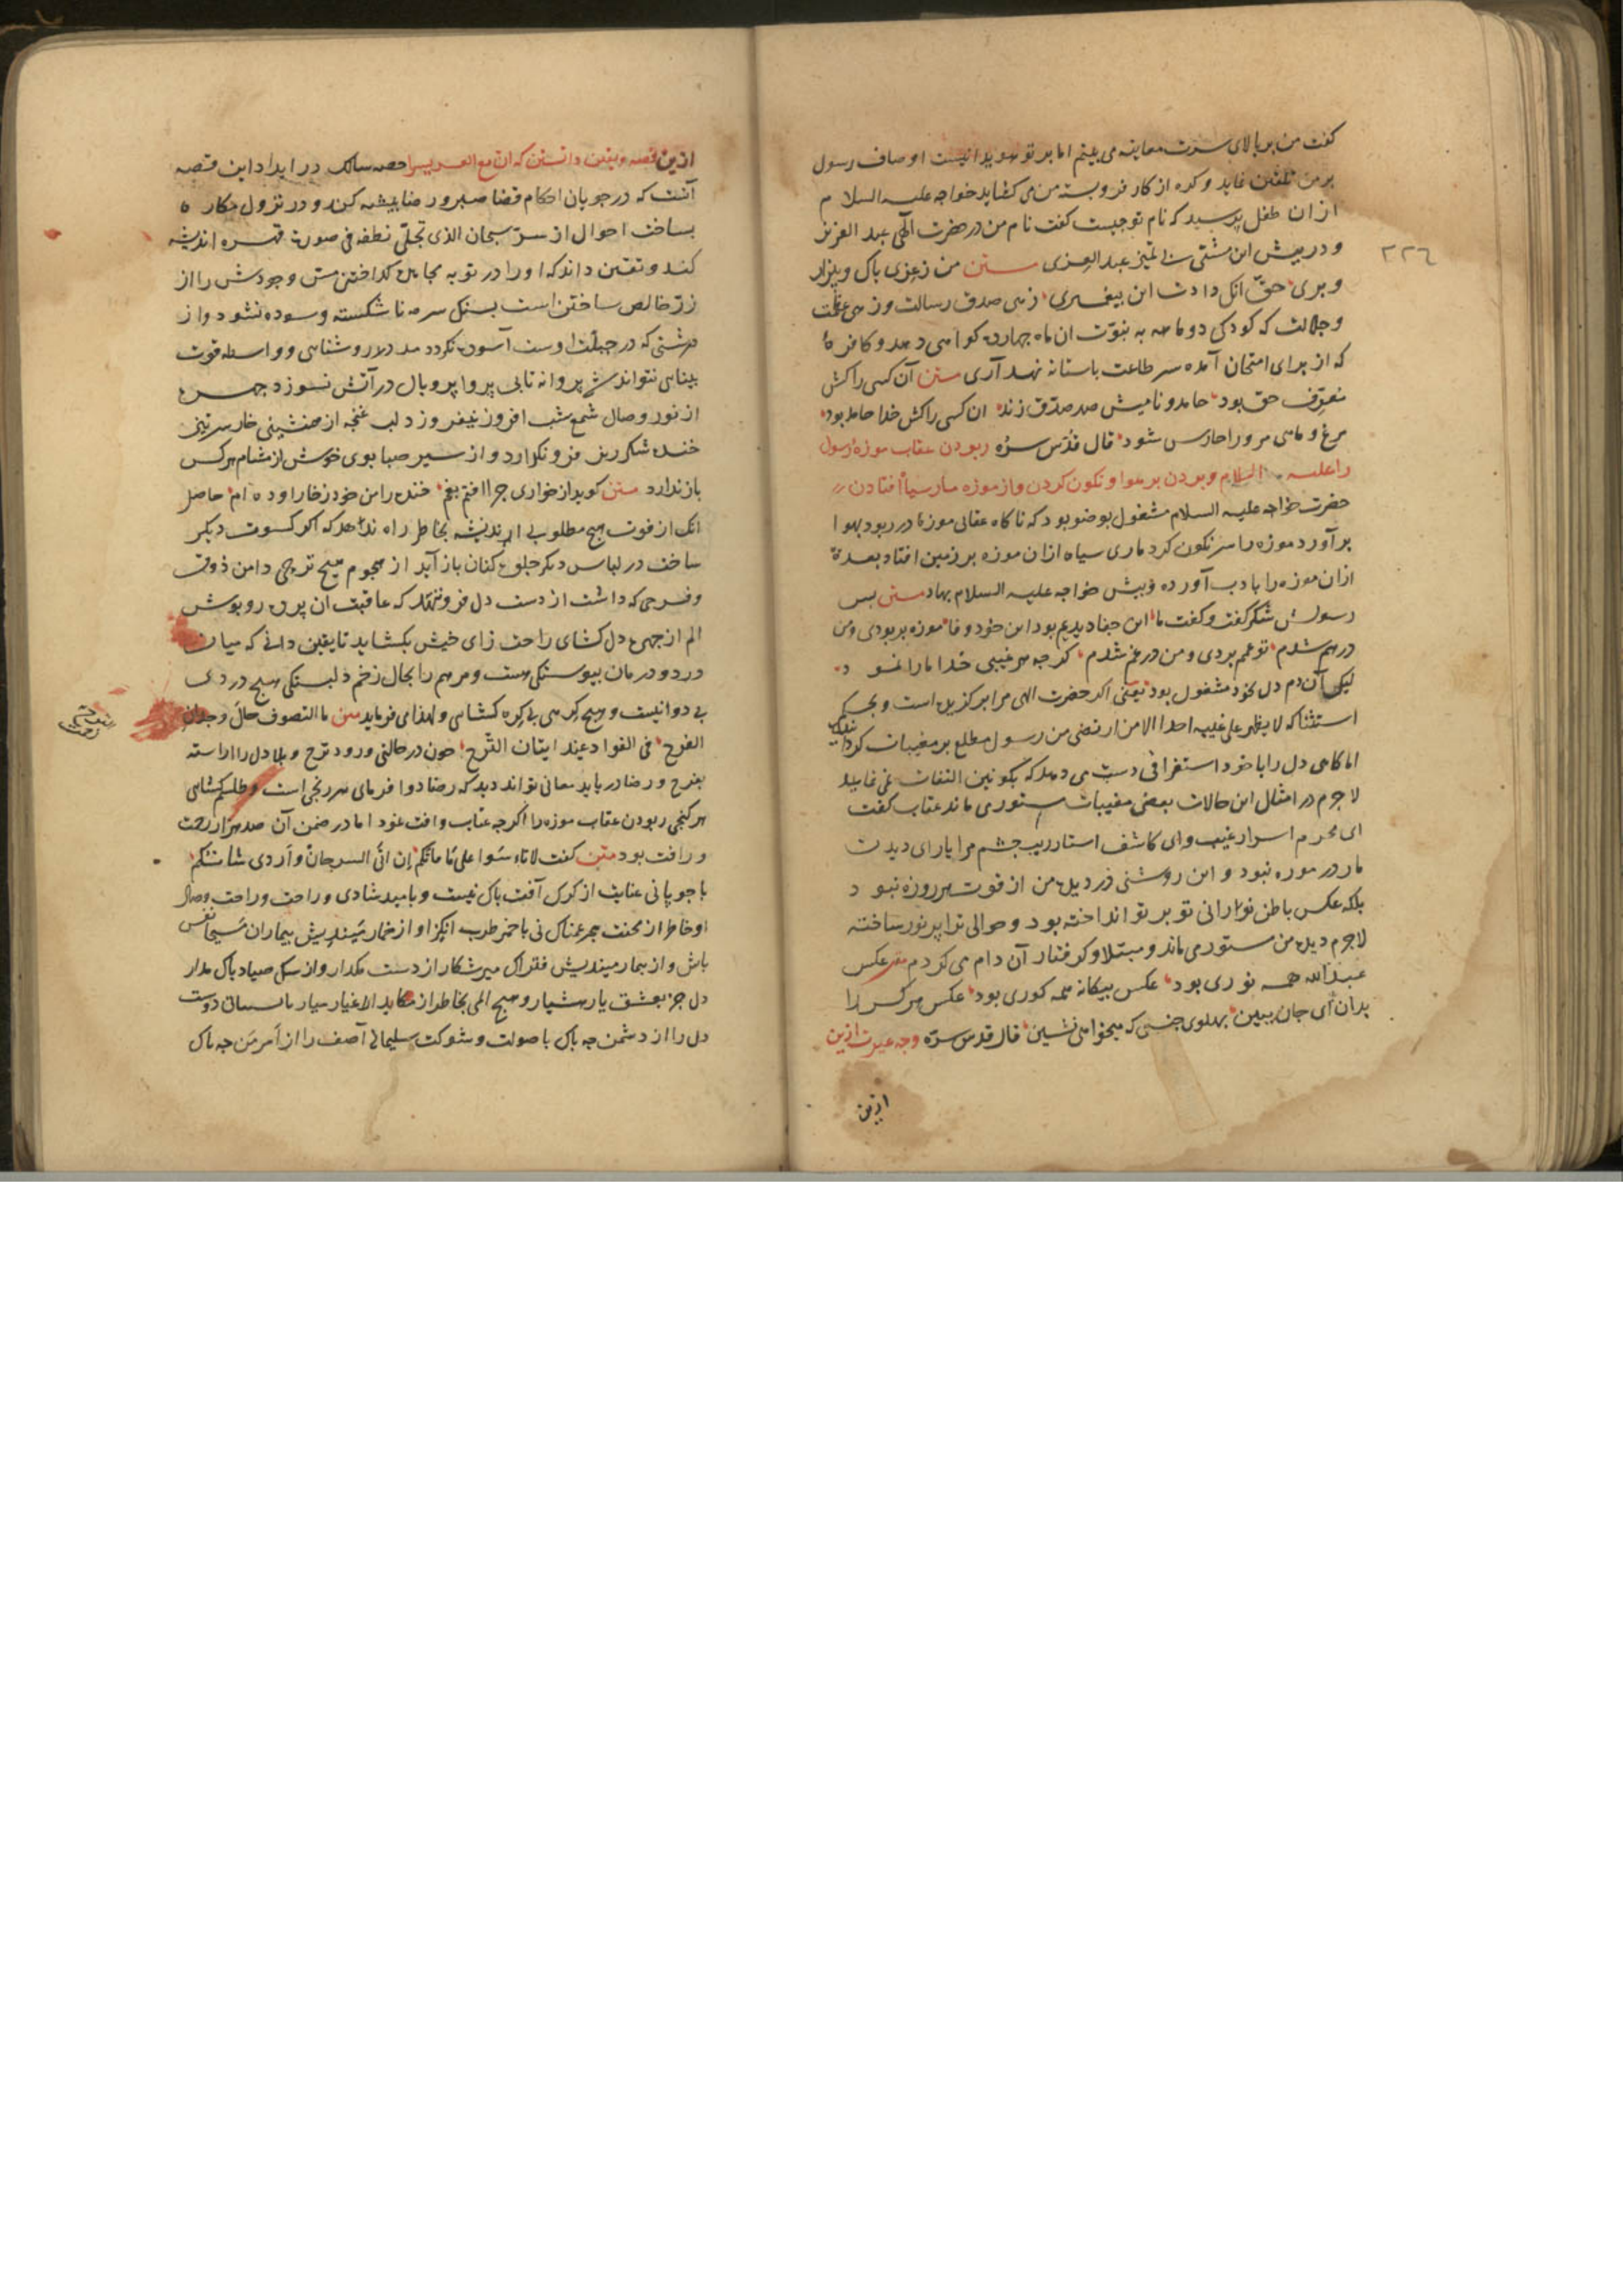 ٢٢٦
گفت من بر بالای سرت معاینه می بینم اما بر تو هویدا نیست اوصاف رسول
بر من تلقین نماید و کره از کار فرو بسته من می کشاید خواجه علیه السلام
از ان طفل پرسید که نام تو چیست کفت نام من در حضرت الهی عبد العزیز
و در پیش این مشتی بی تمیز عبد العزی متن من ز عزی باک و بیزار
و بری حق انک دادت این پیغمبری زهی صدق رسالت و زهی عظمت
و جلالت که کودکی دو ماهه به نبوت ان ماه چهارده کواهی دهد و کافره
که از برای امتحان آمده سر طاعت باستانه نهد آری متن آن کسی را کش
معرف حق بود جامد و نامیش صد صدق زند ان کسی را کش خدا حافظ بود
مرغ و ماهی مر ورا حارس شود قال قدس سره ربودن عقاب موزه رسول
را علیه السلام و بردن بر هوا و نکون کردن و از موزه مار سیاه افتادن
حضرت خواجه علیه السلام مشغول بوضو بود که ناکاه عقابی موزه در ربود بهوا
بر آورد موزه را سرنکون کرد ماری سیاه ازان موزه بر زمین افتاد بعده
ازان موزه را بادب آورده و پیش خواجه علیه السلام نهاد متن پس
رسولش شکر کفت و کفت ما این جفا دیدیم بود این خود وفا موزه بربودی و من
درهم شدم تو غمم بردی و من در غم شدم کرچه هر غیبی خدا ما را نمود
لیک آن دم دل بخود مشغول بود یعنی اکر حضرت الهی مرا برکزیده است و بحکم
استثنا که لا یظهر علی غیبه احدا الا من ارتضی من رسول مطلع بر مغیبات کردانیده
اما کاهی دل را با خود استغراقی دست می دهد که بکونین التفات نمی نماید
لا جرم در امثال این حالات بعضی مغیبات مستوری ماند عقاب کفت
ای محرم اسرار غیب و ای کاشف استار ریب چشم مرا یارای دیدن
مار در موزه نبود و این روشنی در دیده من از قوت هر روزه نبود
بلکه عکس باطن نورانی تو بر تو انداخته بود و حوالی ترا پر نور ساخته
لاجرم دیده من مستور می ماند و مبتلا و کرفتار آن دام می کردم متن عکس
عبد الله همه نوری بود عکس بیکانه همه کوری بود عکس هر کس را
بدان ای جان ببین پهلوی جنسی که میخواهی نشین قال قدس سره وجه عبرت ازین
ازین
ازین قصه و یقین دانستن که ان مع العسر یسرا حصه سالک در ایراد این قصه
آنست که در جریان احکام قضا صبر و رضا پیشه کند و در نزول مکاره
بساخت احوال از سر سبحان الذی تجلی لطفه فی صورت قهره اندیشه
کند و یقین داند که او را در بوته مجاهده کداختن مس وجودش را از
زر خالص ساختن است بسنک سرمه تا شکسته و سوده نشود و از
درشتی که در جبلت اوست آسوده نکردد مدد روشنایی و واسطه قوت
بینایی نتواند شد پروانه تا بی پروا پر و بال در آتش نسوزد چهره
از نور وصال شمع شب افروز نیفروزد لب غنچه از همنشینی خار سرتیز
خنده شکر ریز فرو نکذارد و از سیر صبا بوی خوش از مشام هر کس
باز ندارد متن کوید از خواری چرا افتم بغم خنده را من خود ز خار آورده ام حاصل
انک از فوت هیچ مطلوبی اندیشه بخاطر راه ندهد که اکر کسوت دیکر
ساخت در لباس دیکر جلوه کنان باز آید از هجوم هیچ ترحی دامن ذوق
و فرحی که داشت از دست دل فرو نهلد که عاقبت ان پرده روپوش
الم از چهره دل کشای راحت زای خویش بکشاید تا یقین دانی که میان
درد و درمان پیوستکی هست و مرهم را بحال زخم دلبستکی هیچ دردی
بی دوا نیست و هیچ کرهی بی کره کشایی و لهذا می فرماید متن ما التصوف قال وجدان
الفرح فی الفواد عند اتیان الترح چون در حالتی ورود ترح و بلا دل را آراسته
بفرح و رضا دریابد معانی تواند دید که رضا دوا فرمای هر رنجی است و طلسم کشای
هر کنجی ربودن عقاب موزه را اکرچه عتاب و آفت نمود اما در ضمن آن صد هزار رحمت
و رافت بود متن کفت لا تاسوا علی ما فاتکم ان اتی السرحان و اردی شاتکم
با چوپانی عنایت از کرک آفت باک نیست و بامید شادی و راحت وصال
او خاطر از محنت هجر غمناک نی با خمر طرب انکیز او از خمار میندیش بیماران مسیحا نفس
باش و از بیمار میندیش فتراک میر شکار از دست مکذار و از سک صیاد باک مدار
دل جز بعشق یار مسپار و هیچ المی بخاطر از مکاید الاغیار میار با سیمای دوست
دل را از دشمن چه باک با صولت و شوکت سلیمانی آصف را از اهرمن چه باک